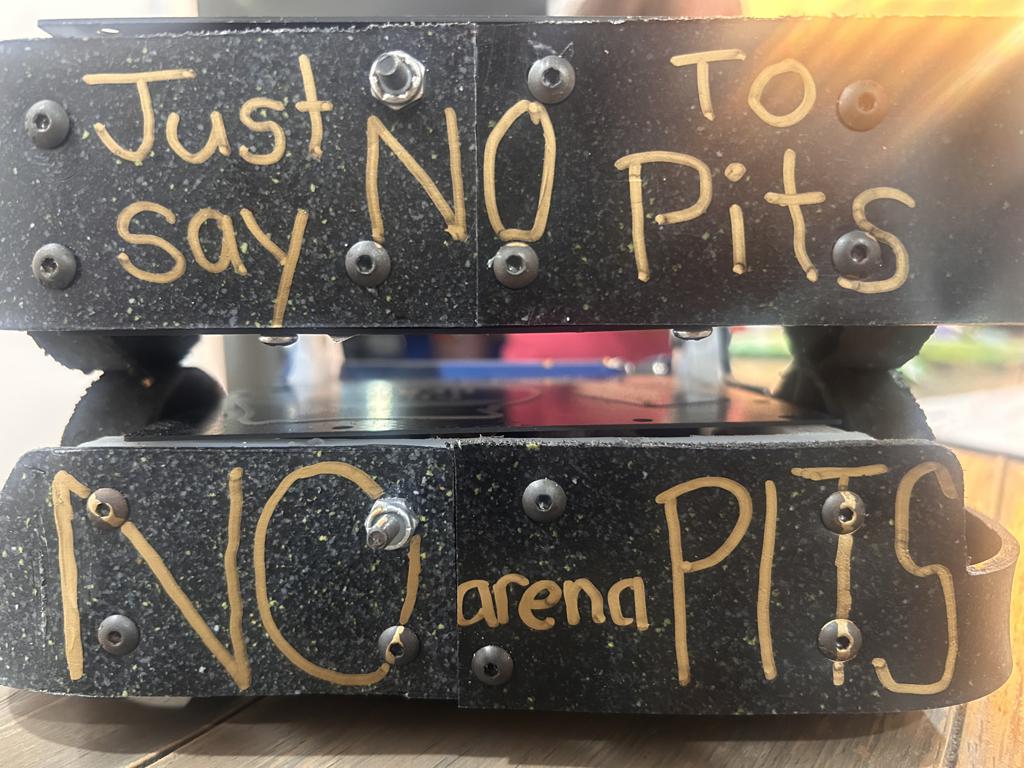 Just say NO TO Pits
NO arena PITS